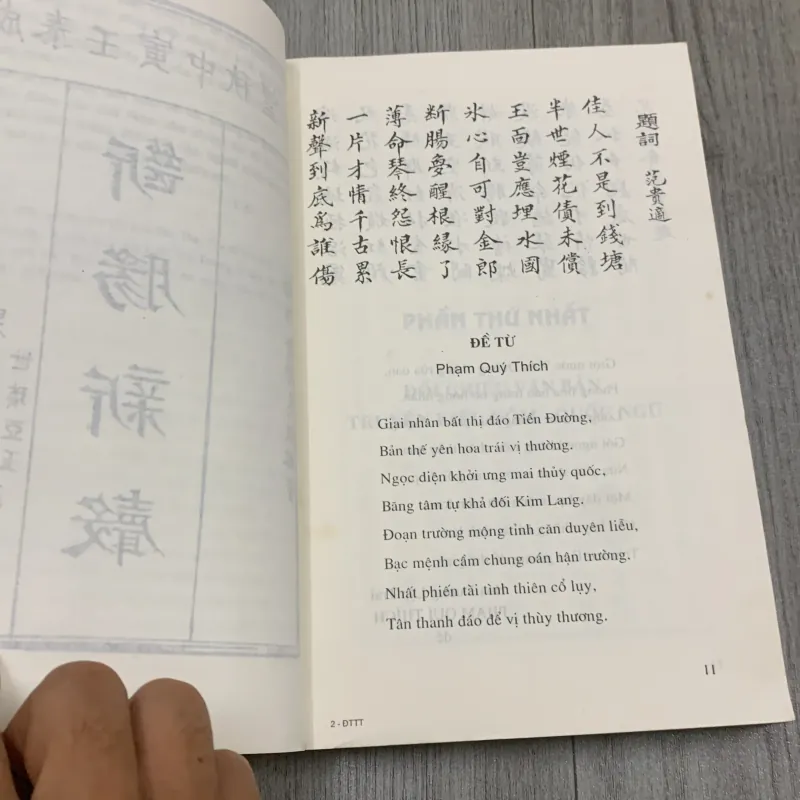 題詞 范貴適
佳人不是到錢塘
半世煙花債未償
玉面豈應埋水國
氷心自可對金郎
断腸夢醒根緣了
薄命琴終怨恨長
一片才情千古累
新聲到底爲誰傷
ĐỀ TỪ
Phạm Quý Thích
Giai nhân bất thị đáo Tiền Đường,
Bản thế yên hoa trái vị thường.
Ngọc diện khởi ưng mai thủy quốc,
Băng tâm tự khả đối Kim Lang.
Đoạn trường mộng tỉnh căn duyên liễu,
Bạc mệnh cầm chung oán hận trường.
Nhất phiến tài tình thiên cổ lụy,
Tân thanh đáo để vị thùy thương.
11
2 - ĐTTT